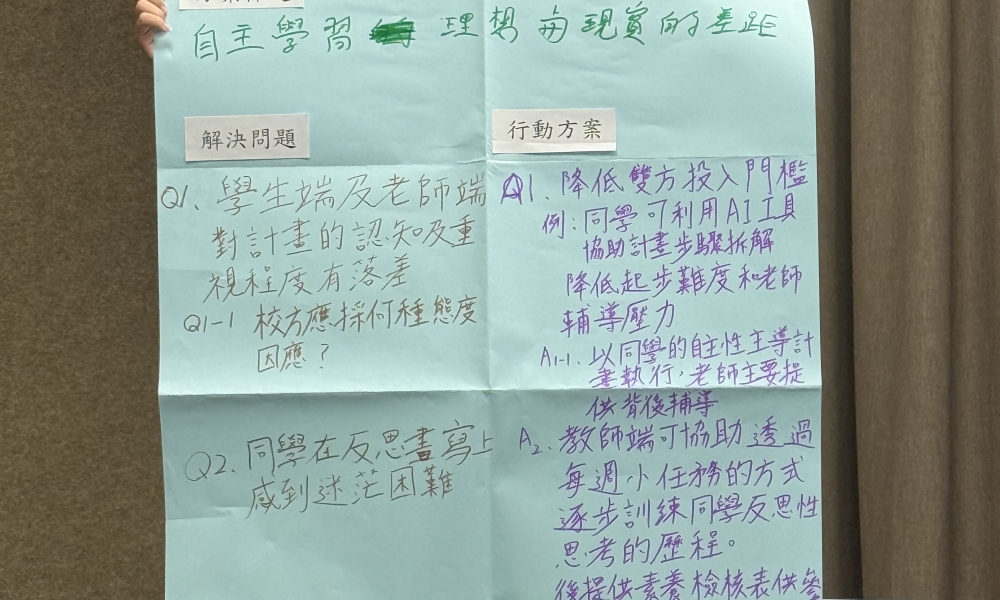 自主學習 理想與現實的差距
解決問題
Q1、學生端及老師端
對計畫的認知及重
視程度有落差
Q1-1 校方應採何種態度
因應？
Q2.同學在反思書寫上
感到迷茫困難
行動方案
Q1.降低雙方投入門檻
例：同學可利用AI工具
協助計畫步驟拆解
降低起步難度和老師
輔導壓力
A1-1.以同學的自主性主導計
畫執行，老師主要提
供背後輔導
A2.教師端可協助透過
每週小任務的方式
逐步訓練同學反思性
思考的歷程。
後提供素養檢核表供參